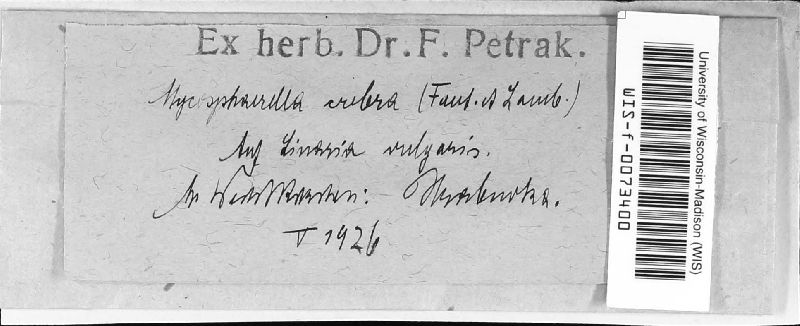 Ex herb. Dr. F. Petrak.
Mycosphaerella crebra (Faut. et Lamb.)
Auf Linaria vulgaris.
Hrabuvka.
V 1926
University of Wisconsin-Madison (WIS)
WIS-f-0073400